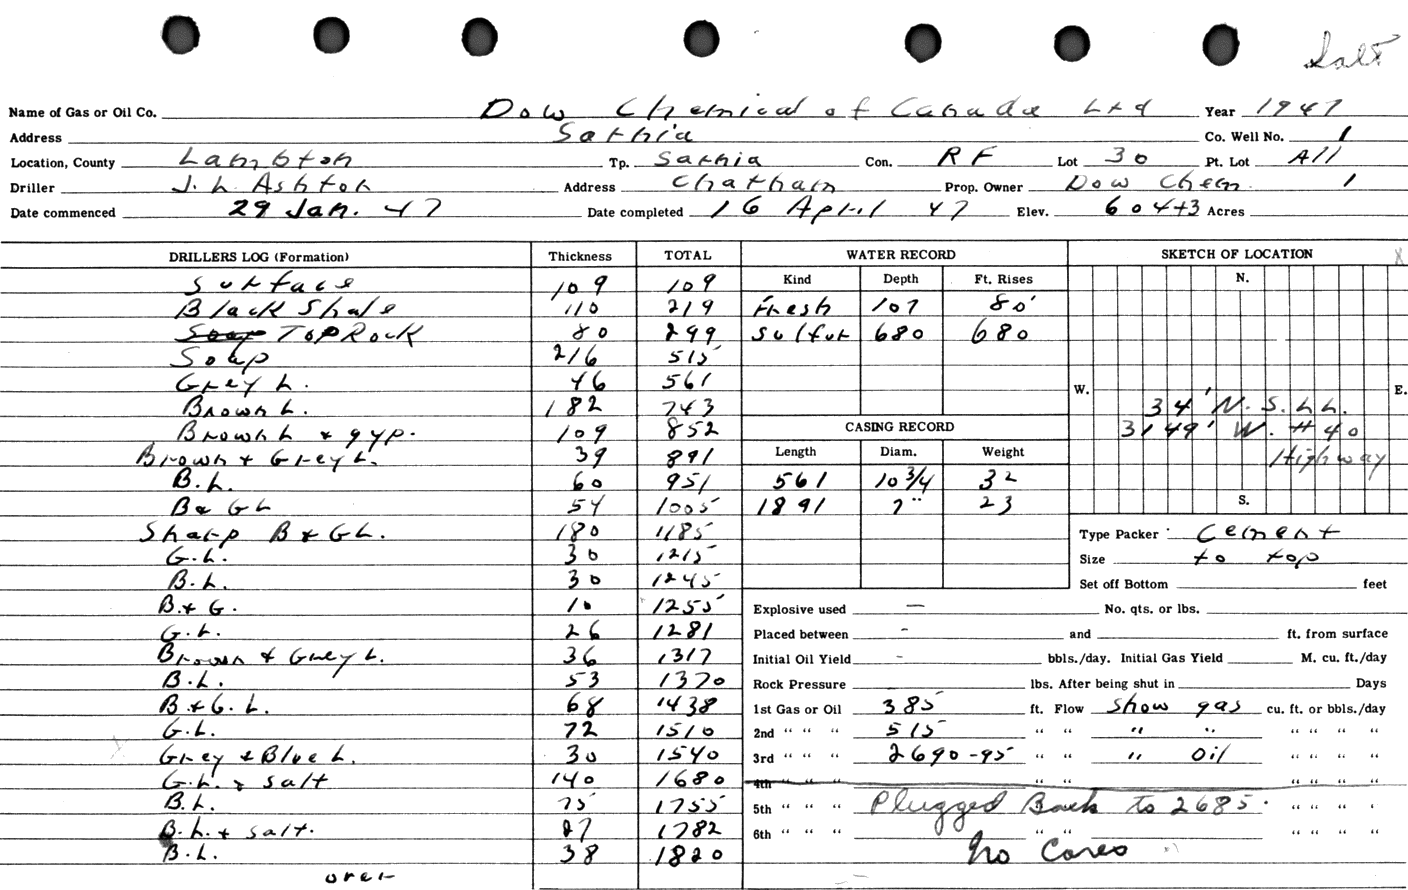 Salt
Name of Gas or Oil Co. Dow Chemical of Canada Ltd Year 1947
Address Sarnia Co. Well No. 1
Location, County Lambton Tp. Sarnia Con. R F Lot 30 Pt. Lot All
Driller J. L Ashton Address Chatham Prop. Owner Dow Chem. 1
Date commenced 29 Jan. 47 Date completed 16 April 47 Elev. 604+3 Acres
DRILLERS LOG (Formation) Thickness TOTAL WATER RECORD SKETCH OF LOCATION
Kind Depth Ft. Rises N.
Surface 109 109
Black Shale 110 219 Fresh 107 80'
Soap TopRock 80 299 Sulfur 680 680
Soap 216 515
Grey L. 46 561 W. E.
Brown L. 182 743 34' N. S. L L.
Brown L & gyp. 109 852 CASING RECORD 3149' W. #40
Brown & Grey L. 39 891 Length Diam. Weight Highway
B.L. 60 951 561 10 3/4 32
B & G L 54 1005 1891 7" 23 S.
Sharp B & G L. 180 1185 Type Packer Cement
G.L. 30 1215 Size to top
B.L. 30 1245 Set off Bottom feet
B. & G. 10 1255 Explosive used — No. qts. or lbs.
G.L. 26 1281 Placed between - and ft. from surface
Brown & Grey L. 36 1317 Initial Oil Yield - bbls./day. Initial Gas Yield M. cu. ft./day
B.L. 53 1370 Rock Pressure lbs. After being shut in Days
B. & G. L. 68 1438 1st Gas or Oil 385 ft. Flow Show gas cu. ft. or bbls./day
G.L. 72 1510 2nd " " " 515 " " " " " " " "
Grey & Blue L. 30 1540 3rd " " " 2690-95 " " " Oil " " " "
G.L. & Salt 140 1680 4th " " " " " " " " "
B.L. 75 1755 5th " " " Plugged Back to 2685. " " " "
B.L. & Salt. 27 1782 6th " " " " " " " " "
B.L. 38 1820 No Cores
over